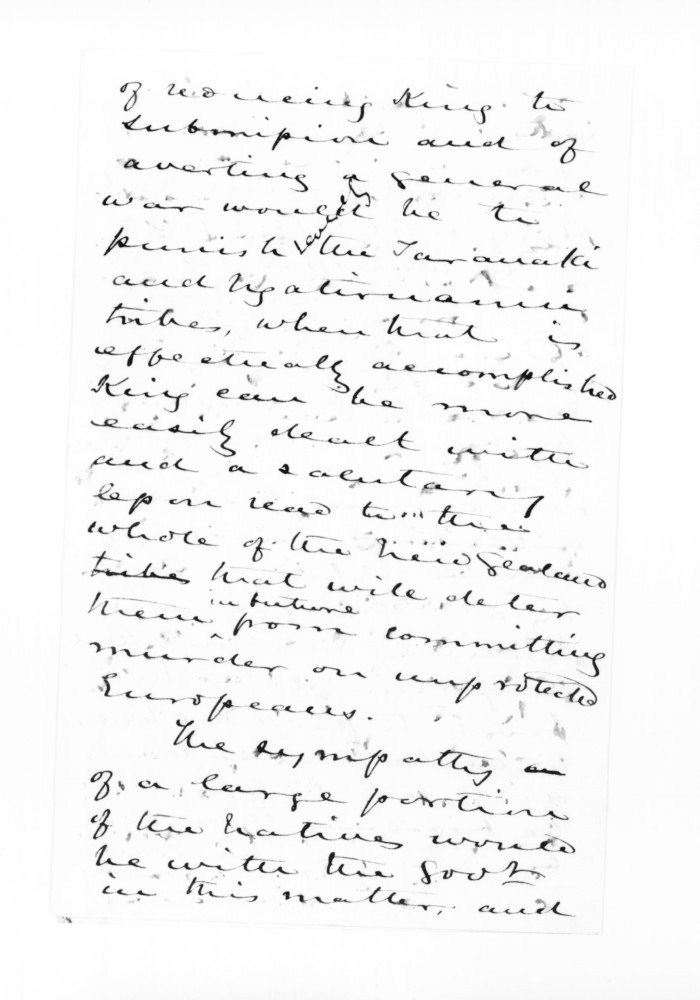 of reducing King to
submission and of
averting a general
war would be to
punish the Taranaki
and Ngatiruanui
tribes, when that is
effectually accomplished
King can be more
easily dealt with
and a salutary
lesson read to the
whole of the New Zealand
tribes that will deter
them in future from committing
murder on unprotected
Europeans.
The sympathy
of a large portion
of the Natives would
be with the Govt
in this matter, and